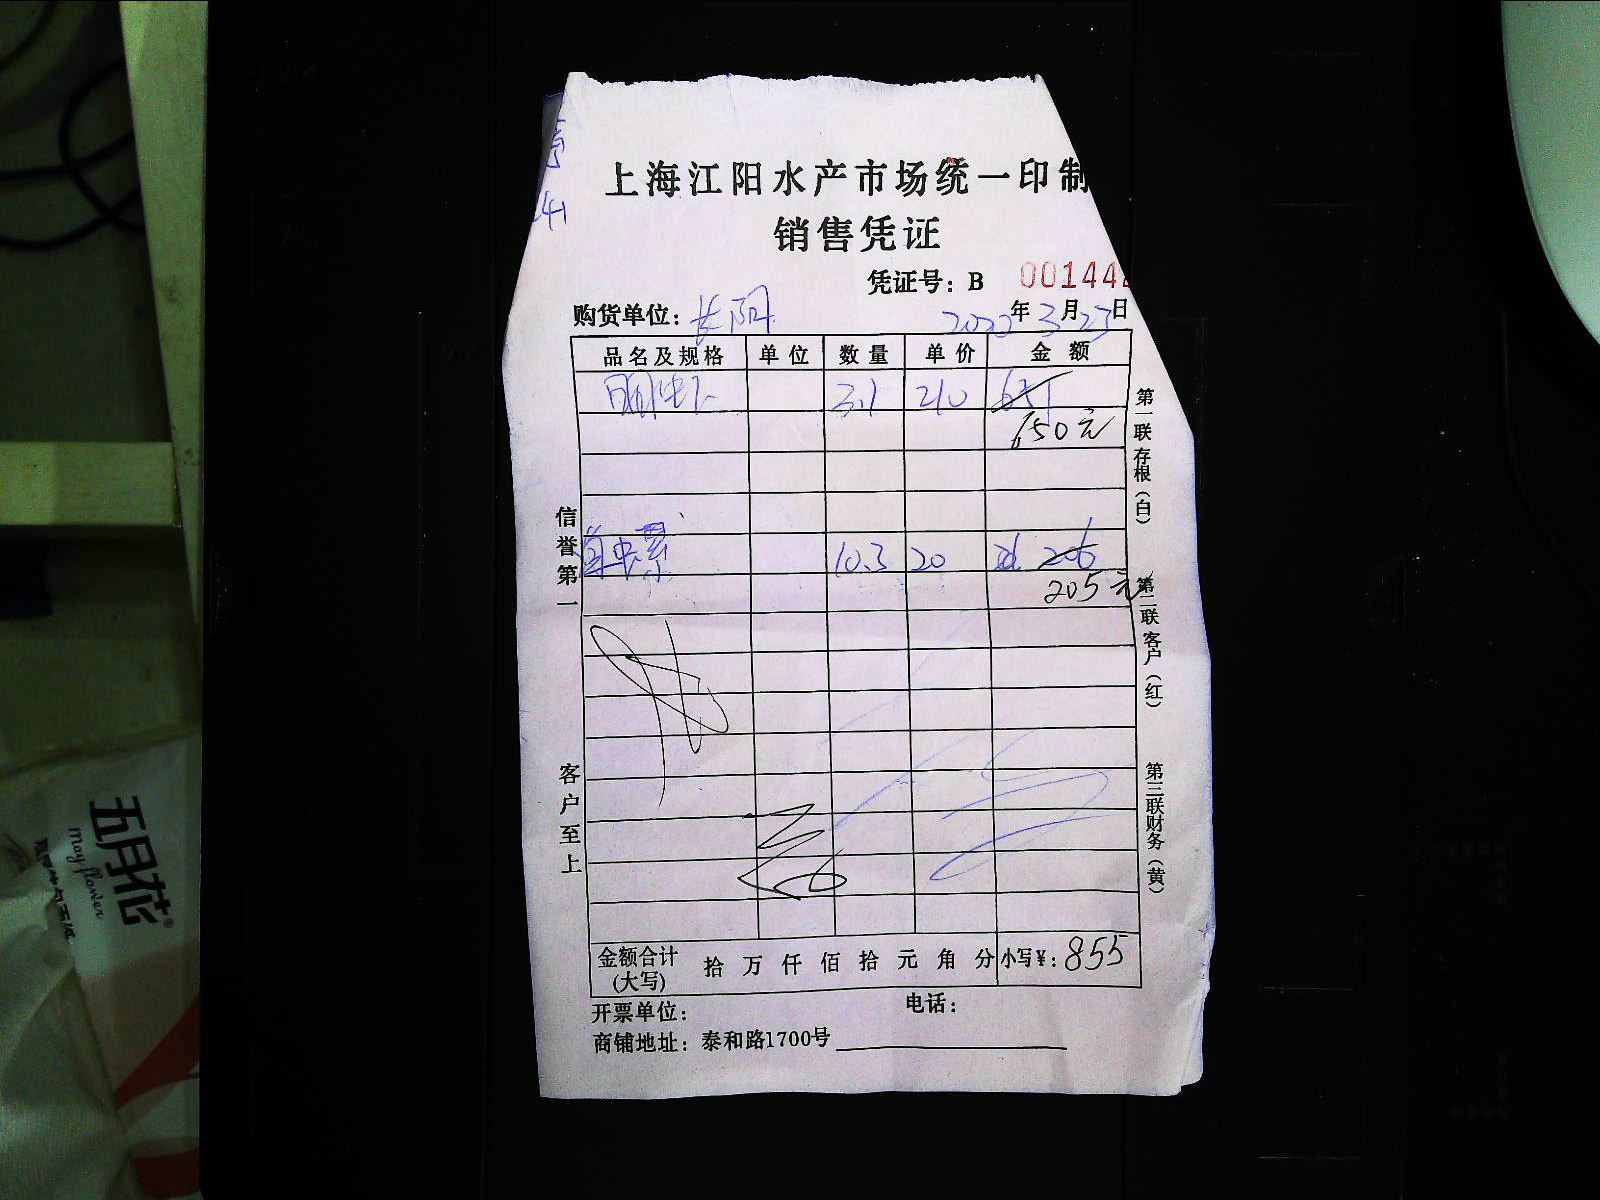 上海江阳水产市场统一印制
销售凭证
凭证号：B 00144
购货单位：长阳 年3月23日
品名及规格 单位 数量 单价 金额
3.1 210 651
650元
10.3 20 206
205元
金额合计(大写) 拾 万 仟 佰 拾 元 角 分 小写¥：855
开票单位： 电话：
商铺地址：泰和路1700号
信誉第一
客户至上
第一联存根（白）
第二联客户（红）
第三联财务（黄）
五月花
mayflower